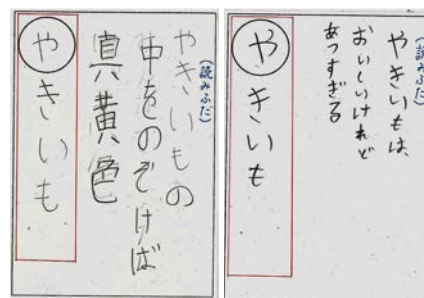 (読みふだ)
やきいもの
中をのぞけば
真黄色
やきいも
(読みふだ)
やきいもは、
おいしいけれど
あっすぎる
やきいも